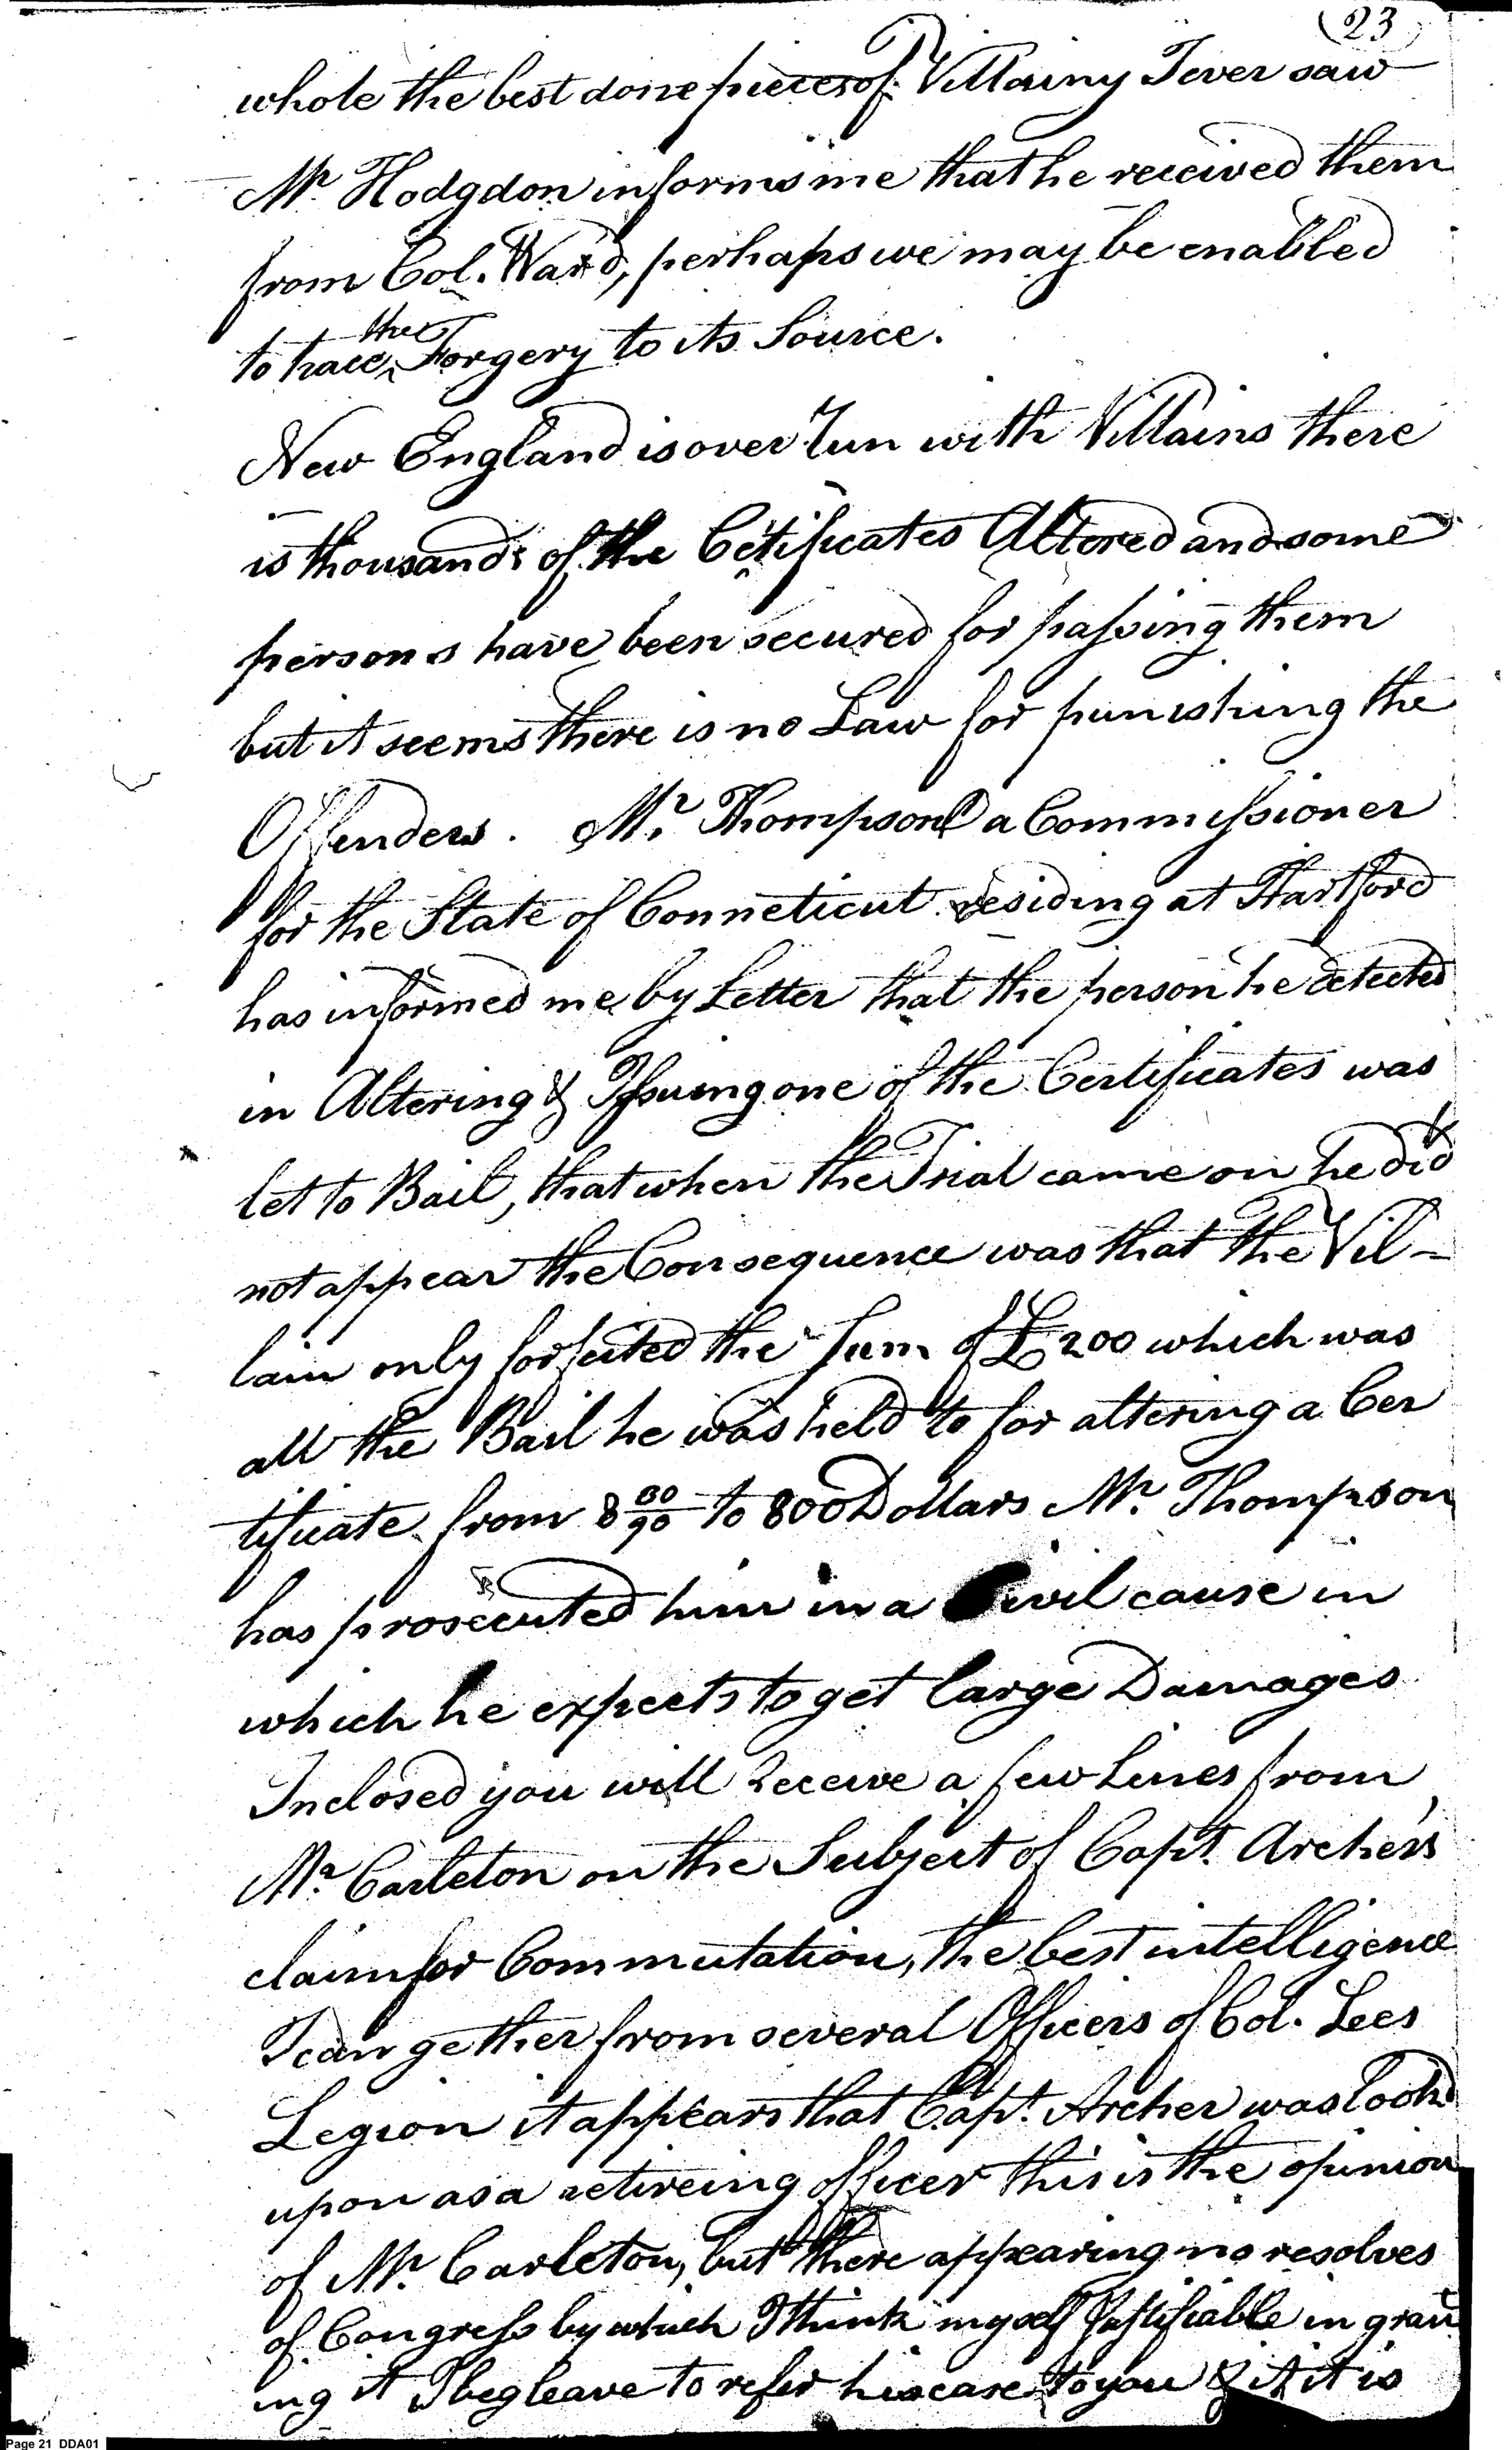 (23)
whole the best done pieces of Villainy I ever saw
Mr. Hodgdon informs me that he received them
from Col. Ward, perhaps we may be enabled
to trace the Forgery to its Source.
New England is over run with Villains there
is thousands of the Cetificates Altered and some
persons have been secured for passing them
but it seems there is no Law for punishing the
Offenders. Mr. Thompson a Commissioner
for the State of Conneticut residing at Hartford
has informed me by Letter that the person he detected
in Altering & Issuing one of the Certificates was
let to Bail, that when the Trial came on he did
not appear the Consequence was that the Vil-
lain only forfeited the Sum of £200 which was
all the Bail he was held to for altering a Cer
tificate from 8 80/90 to 800 Dollars Mr. Thompson
has prosecuted him in a Civil cause in
which he expects to get large Damages
Inclosed you will receive a few Lines from
Mr. Carleton on the Subject of Capt. Archer's
claim for Commutation, the best intelligence
I can gether from several Officers of Col. Lees
Legion it appears that Capt. Archer was look'd
upon as a retireing officer this is the opinion
of Mr. Carleton, but there appearing no resolves
of Congress by which I think myself Justifiable in grant
ing it I beg leave to refer his case to you & it it is
Page 21 DDA01